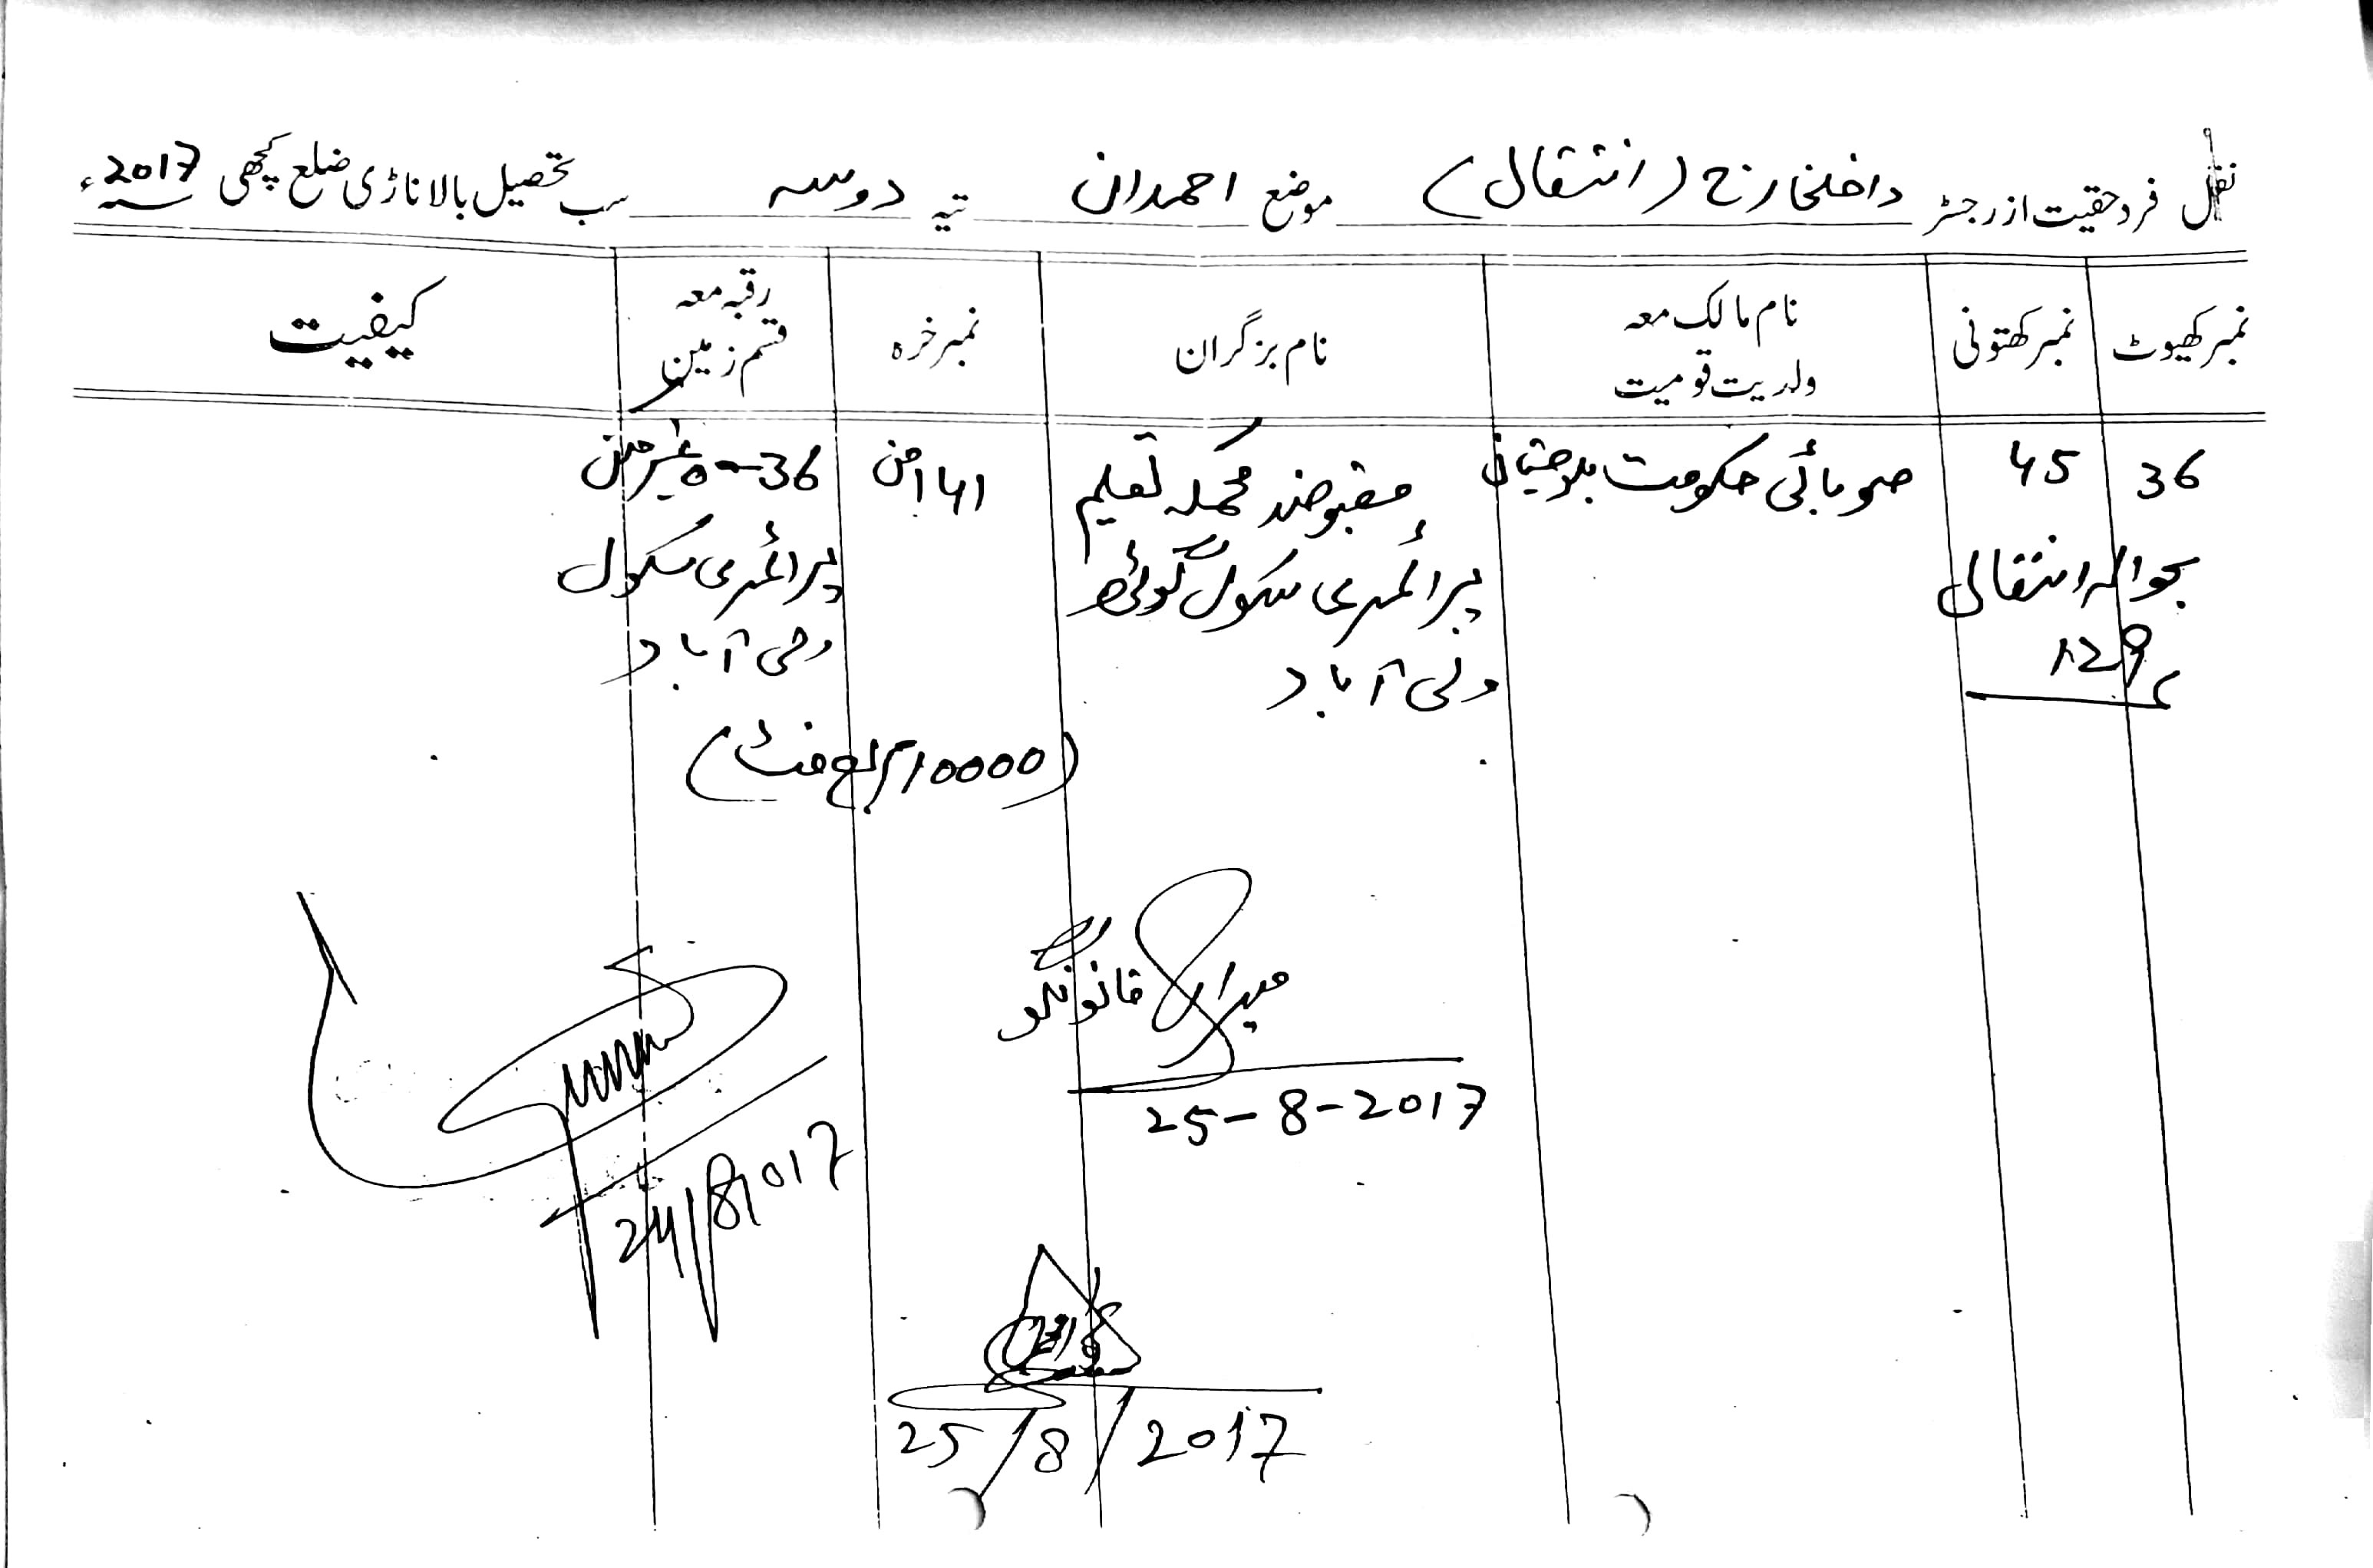 نقل فرد حقیت از رجسٹر داخلخارج (انتقال) موضع احمدان تپہ دوسہ سب تحصیل بالا ناڑی ضلع کچھی 2017ء
نمبر کھیوٹ نمبر کھتونی نام مالک معہ ولدیت قومیت نام بزگران نمبر خسرہ رقبہ معہ قسم زمین کیفیت
36 45 صوبائی حکومت بلوچستان مقبوضہ محکمہ تعلیم 36-0 غیر ممکن
بحوالہ انتقال پرائمری سکول گوٹھ پرائمری سکول
129 ولی آباد ولی آباد
(10000 مربع فٹ)
قانونگو
25-8-2017
24/8/2017
25/8/2017